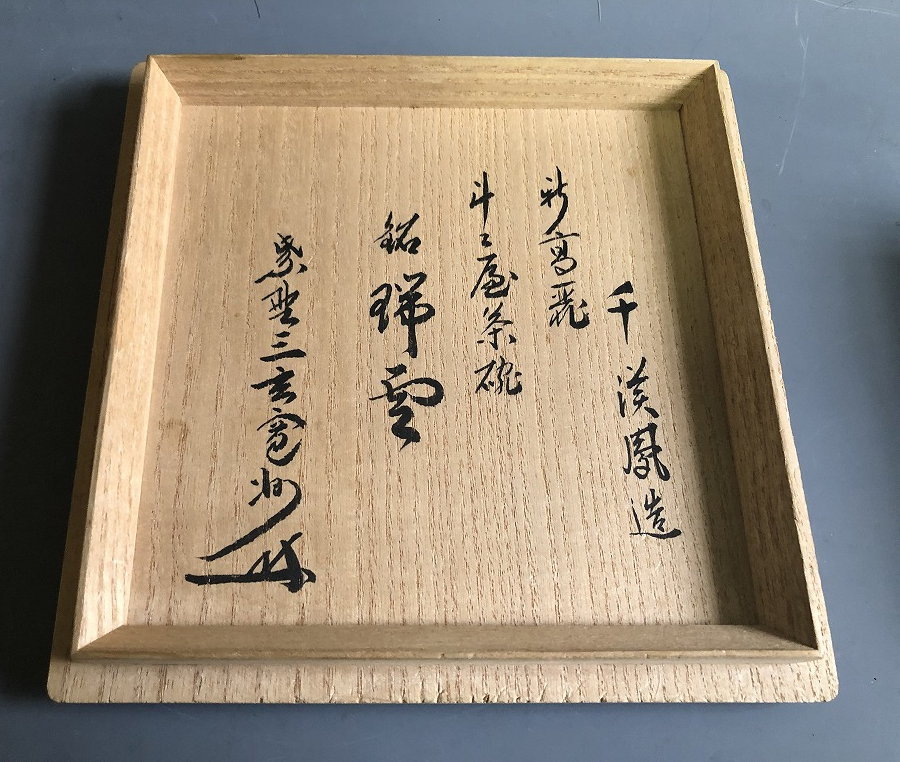 千漢鳳造
新高麗
斗々屋茶碗
銘瑞雲
紫野三玄寛州